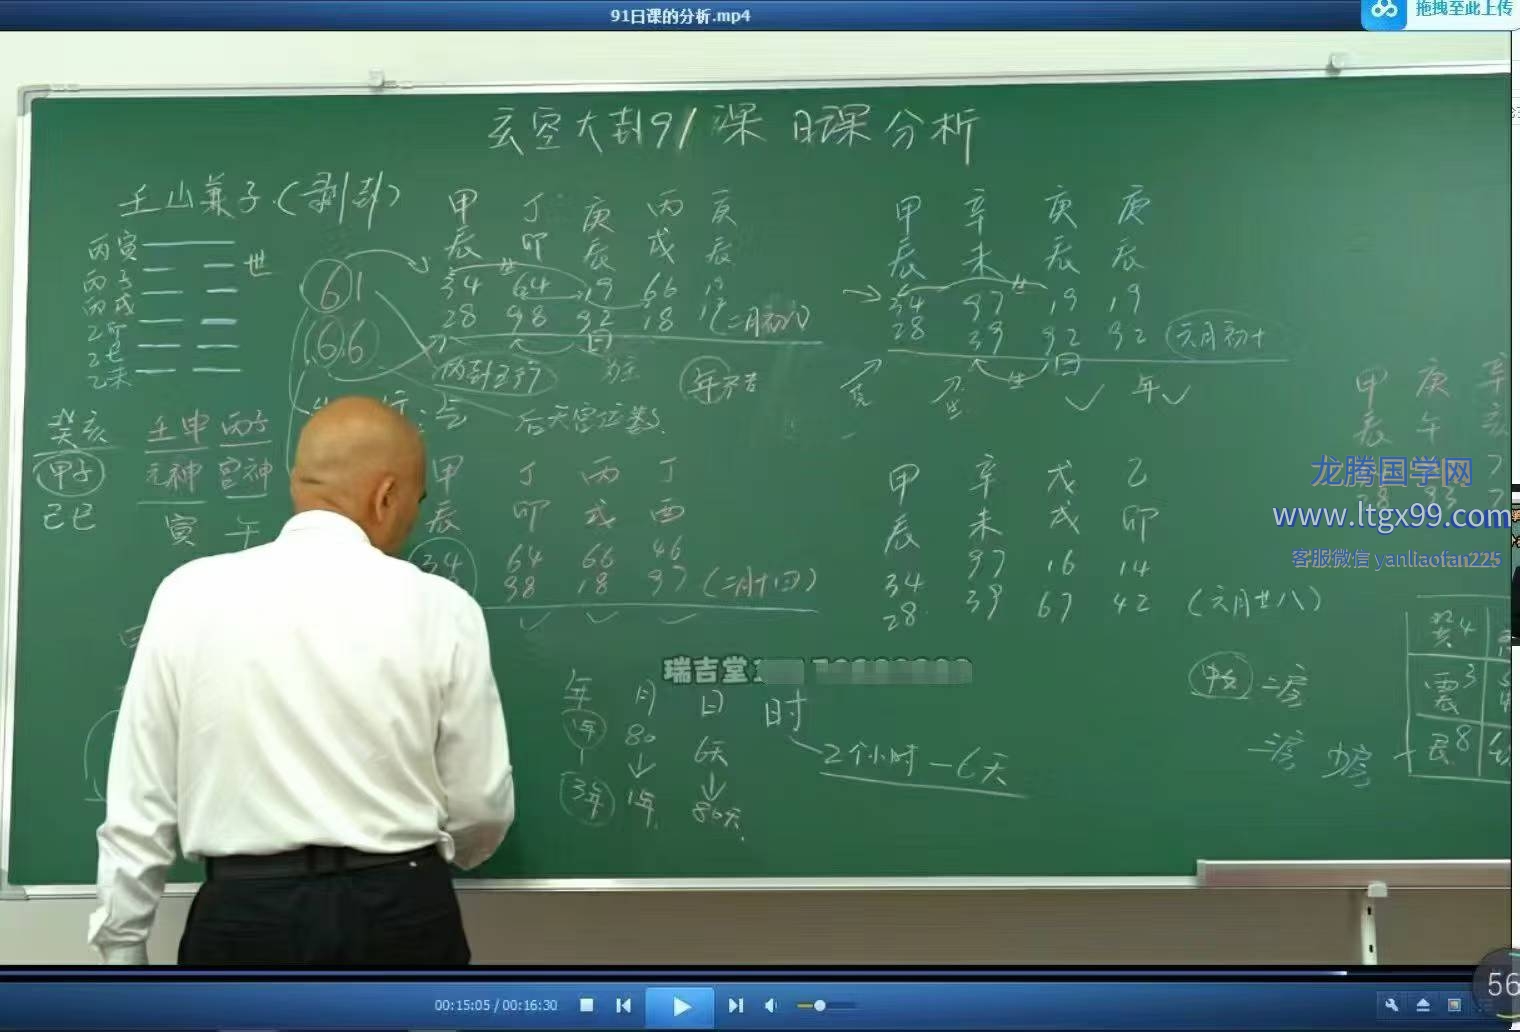 91日课的分析.mp4
拖拽至此上传
玄空大卦91课 日课分析
壬山兼子(剥卦)
丙寅
丙子 世
丙戌
乙卯
乙巳
乙未
癸亥 壬申 丙子
甲子 元神 官神
己巳 寅 午
61
66
甲 丁 庚 丙 庚
辰 卯 辰 戌 辰
34 64 19 66 19
28 98 92 18 (二月初八)
日
两卦五行 为主 年不吉
后天宫位数
甲 丁 丙 丁
辰 卯 戌 酉
34 64 66 46
98 18 97 (二月十四)
甲 辛 庚 庚
辰 未 辰 辰
34 97 19 19
28 39 92 92 六月初十
生 日
年
甲 辛 戊 乙
辰 未 戌 卯
34 97 16 14
28 39 67 42 (六月廿八)
甲 庚 辛
辰 午 亥
龙腾国学网
www.ltgx99.com
客服微信 yanliaofan225
瑞吉堂
年 月 日 时
1年 80 6天
3年 1年 80天
2个小时-6天
巽4
震3
艮8
00:15:05 / 00:16:30
56